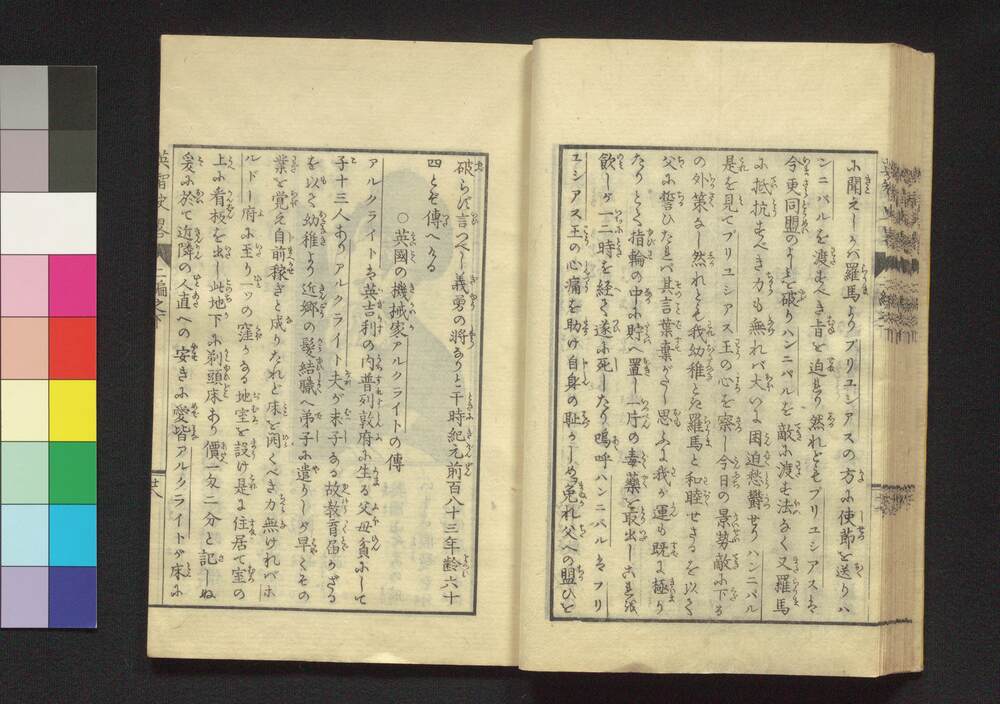 に聞えしかバ羅馬よりブリユシアスの方に使節を送りハ
ンニバルを渡すべき旨を迫る然れどもブリユシアスは
今更同盟のよしを破りハンニバルを敵に渡す法なく又羅馬
に抵抗すべき力も無れバ大いに困迫愁欝せりハンニバル
是を見てブリユシアス王の心を察し今日の景勢敵に下る
の外策なし然れども我幼稚とき羅馬と和睦せざるを以て
父に誓ひたれバ其言葉棄がたし思ふに我が運も既に極り
たりとて指輪の中に貯へ置し一片の毒藥を取出し
飲しが一二時を経て遂に死したり嗚呼ハンニバルはブリ
ユシアス王の心痛を助け自身の恥かしめを免れ父への盟ひを
破らバ言つべし義勇の将なりと于時紀元前百八十三年齢六十
四とぞ傳へける
○英國の機械家アルクライトの傳
アルクライトは英吉利の内普列敦府に生る父母貧にして
子十三人ありアルクライト夫が末子なる故教育届かざる
を以て幼稚より近郷の髪結職へ弟子に遣りしが早くもその
業を覚え自前稼ぎと成りたれど床を開くべき力無けれバボ
ルドー府に至り一ツの窪かなる地室を設け是に住居て室の
上に看板を出し此地下に剃頭床あり價一匁二分と記しぬ
爰に於て近隣の人直への安きに愛皆アルクライトが床に
英智史畧 二編之下
廿八